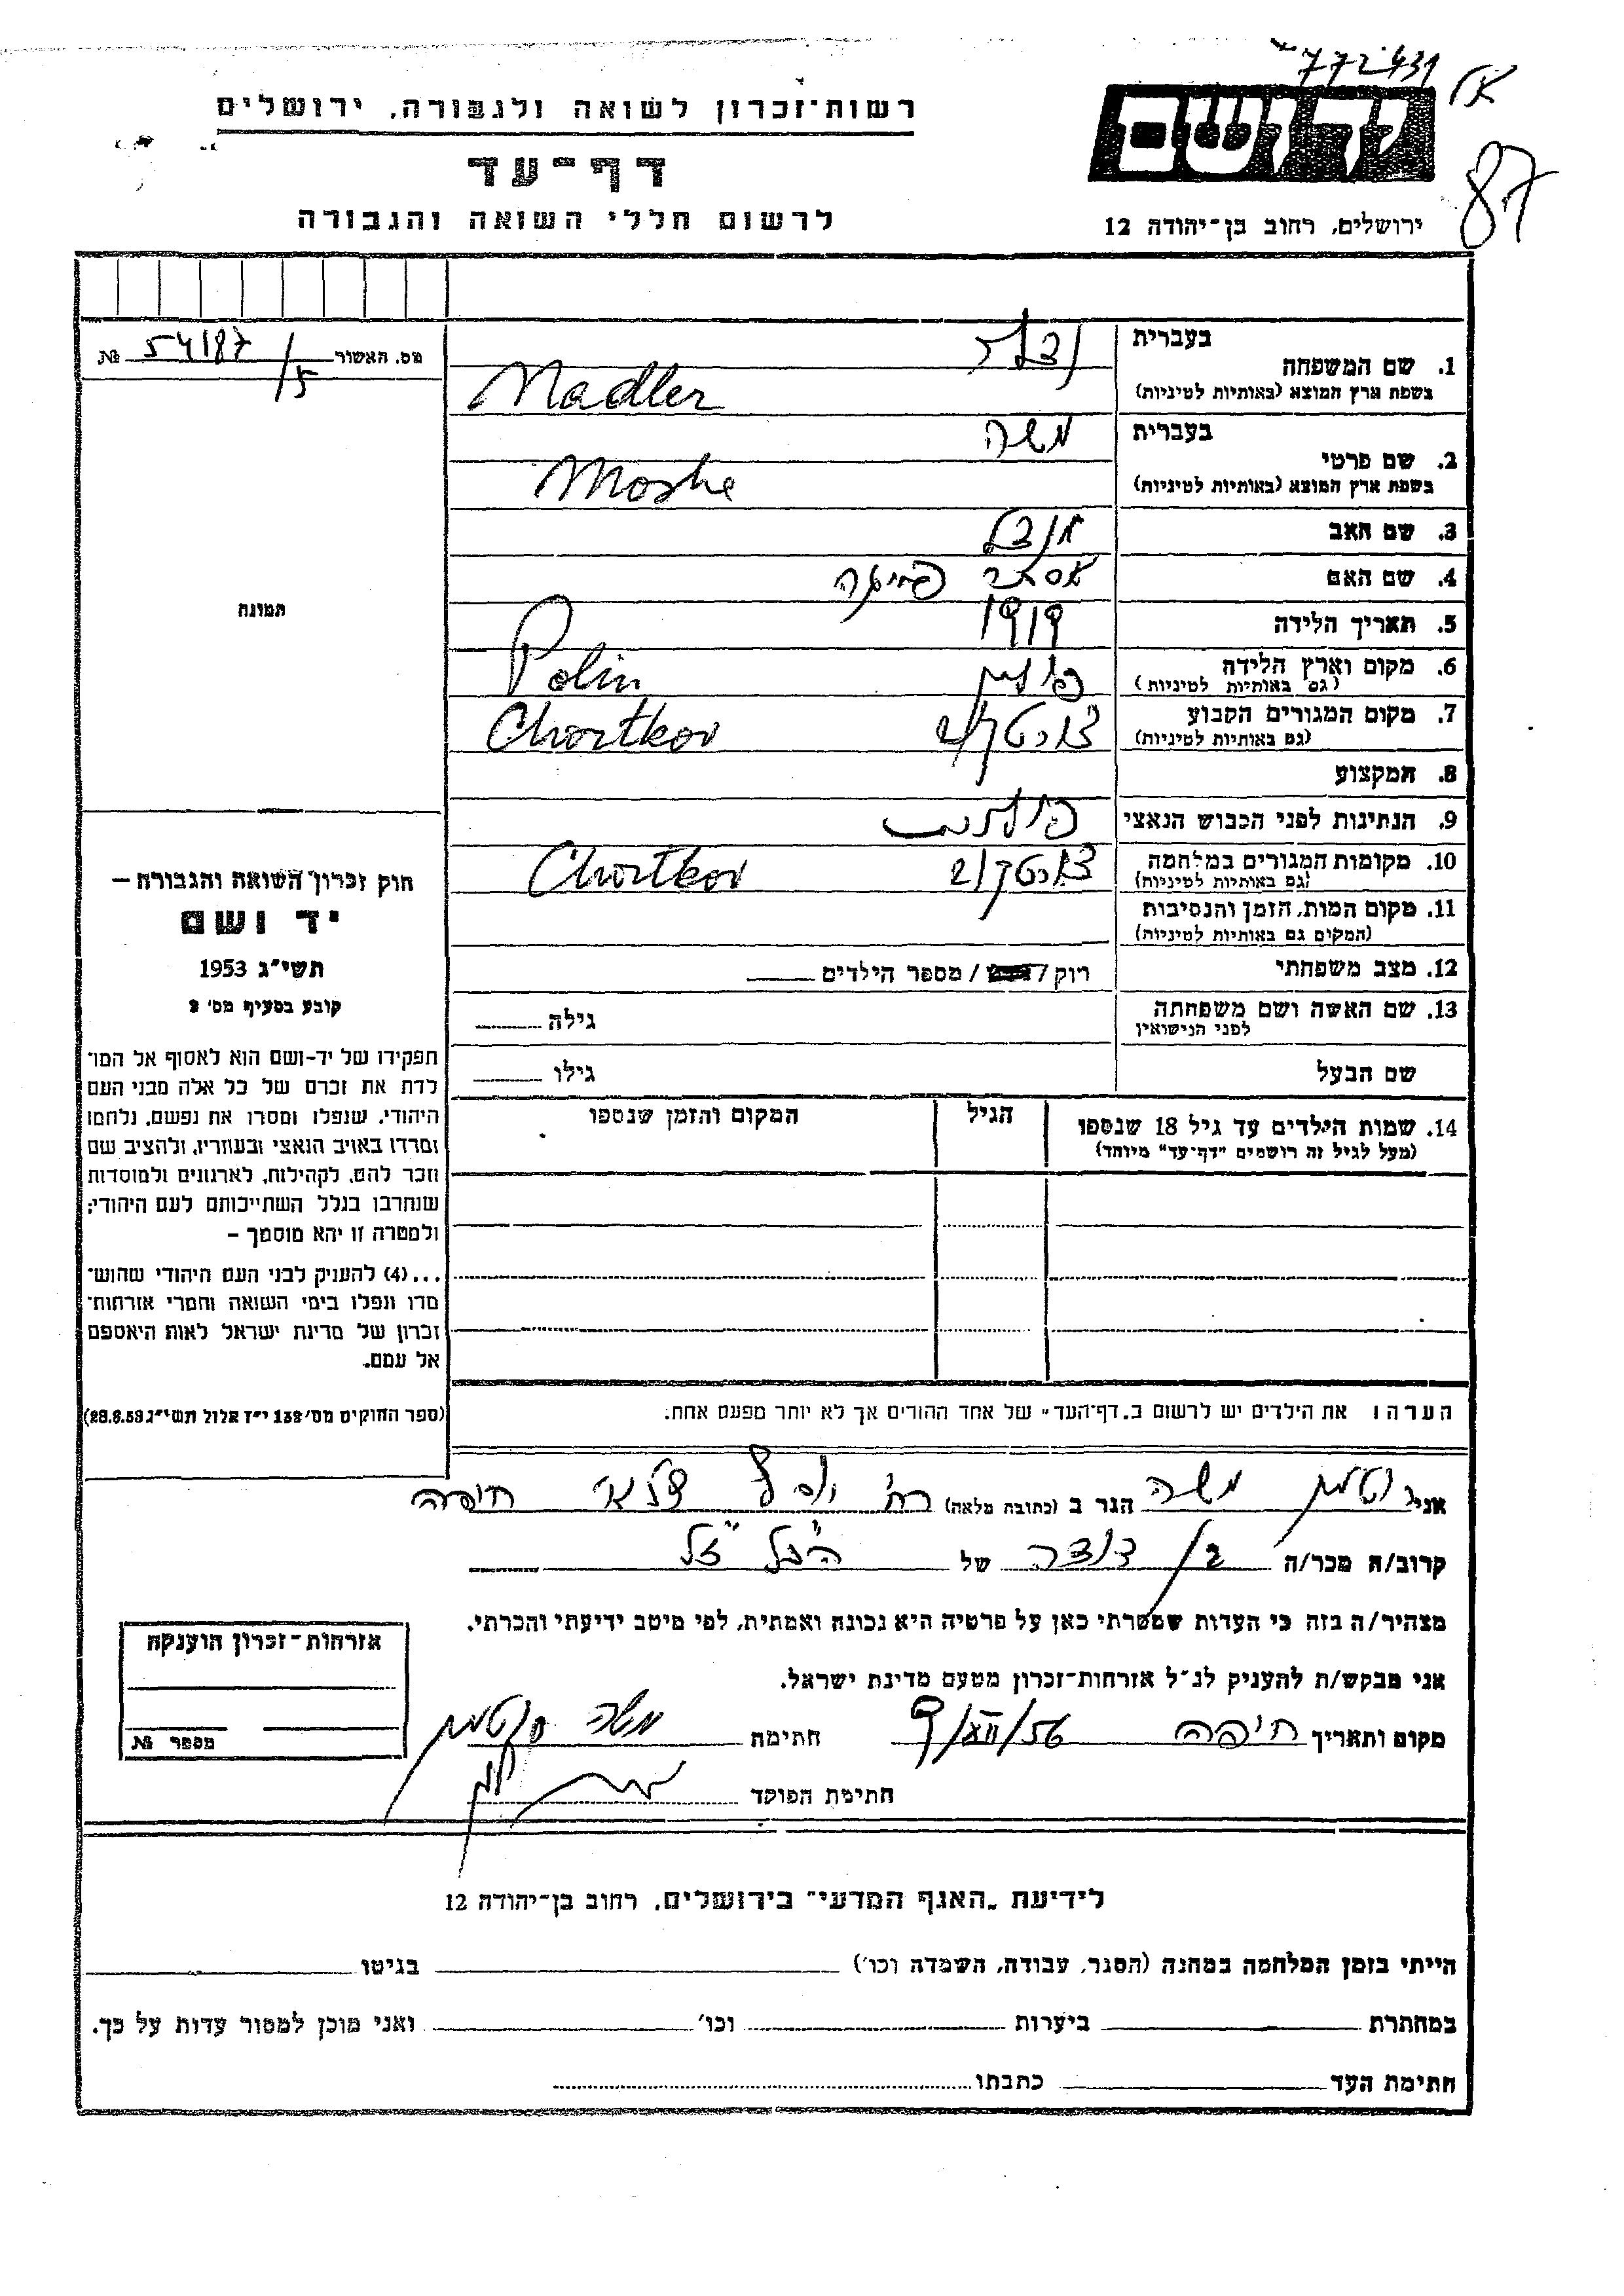 772431
87
רשות־זכרון לשואה ולגבורה, ירושלים
דף־עד
לרשום חללי השואה והגבורה
ירושלים, רחוב בן־יהודה 12
מס. האשור 54187/5 №
בעברית
1. שם המשפחה
בשפת ארץ המוצא (באותיות לטיניות) Nadler
בעברית משה
2. שם פרטי
בשפת ארץ המוצא (באותיות לטיניות) Moshe
3. שם האב
4. שם האם אסתר
5. תאריך הלידה 1919
6. מקום וארץ הלידה פולין Polin
(גם באותיות לטיניות)
7. מקום המגורים הקבוע צ'ורטקוב Chortkov
(גם באותיות לטיניות)
8. המקצוע
9. הנתינות לפני הכבוש הנאצי פולנית
10. מקומות המגורים במלחמה צ'ורטקוב Chortkov
(גם באותיות לטיניות)
11. מקום המות, הזמן והנסיבות
(המקום גם באותיות לטיניות)
12. מצב משפחתי רוק / / מספר הילדים
13. שם האשה ושם משפחתה
לפני הנישואין
גילה
שם הבעל גילו
14. שמות הילדים עד גיל 18 שנספו
(מעל לגיל זה רושמים "דף־עד" מיוחד)
הגיל
המקום והזמן שנספו
תמונה
חוק זכרון השואה והגבורה —
יד ושם
תשי"ג 1953
קובע בסעיף מס' 2
תפקידו של יד-ושם הוא לאסוף אל המו־
לדת את זכרם של כל אלה מבני העם
היהודי, שנפלו ומסרו את נפשם, נלחמו
ומרדו באויב הנאצי ובעוזריו, ולהציב שם
וזכר להם, לקהילות, לארגונים ולמוסדות
שנחרבו בגלל השתייכותם לעם היהודי;
ולמטרה זו יהא מוסמך —
...(4) להעניק לבני העם היהודי שהוש־
מדו ונפלו בימי השואה והמרי אזרחות־
זכרון של מדינת ישראל לאות היאספם
אל עמם.
(ספר החוקים מס' 132 י"ז אלול תשי"ג 28.8.53)
הערה: את הילדים יש לרשום ב„דף־העד" של אחד ההורים אך לא יותר מפעם אחת.
אני משה הגר ב (כתובת מלאה) רח' חיפה
קרוב/ה מכר/ה ב/דודה של הנ"ל ז"ל
מצהיר/ה בזה כי העדות שמסרתי כאן על פרטיה היא נכונה ואמתית, לפי מיטב ידיעתי והכרתי.
אני מבקש/ת להעניק לנ"ל אזרחות־זכרון מטעם מדינת ישראל.
מקום ותאריך חיפה 9/XII/56 חתימה משה
חתימת הפוקד
אזרחות־זכרון הוענקה
מספר №
לידיעת „האגף המדעי" בירושלים, רחוב בן־יהודה 12
הייתי בזמן המלחמה במחנה (הסגר, עבודה, השמדה וכו') בגיטו
במחתרת ביערות וכו' ואני מוכן למסור עדות על כך.
חתימת העד כתבתו